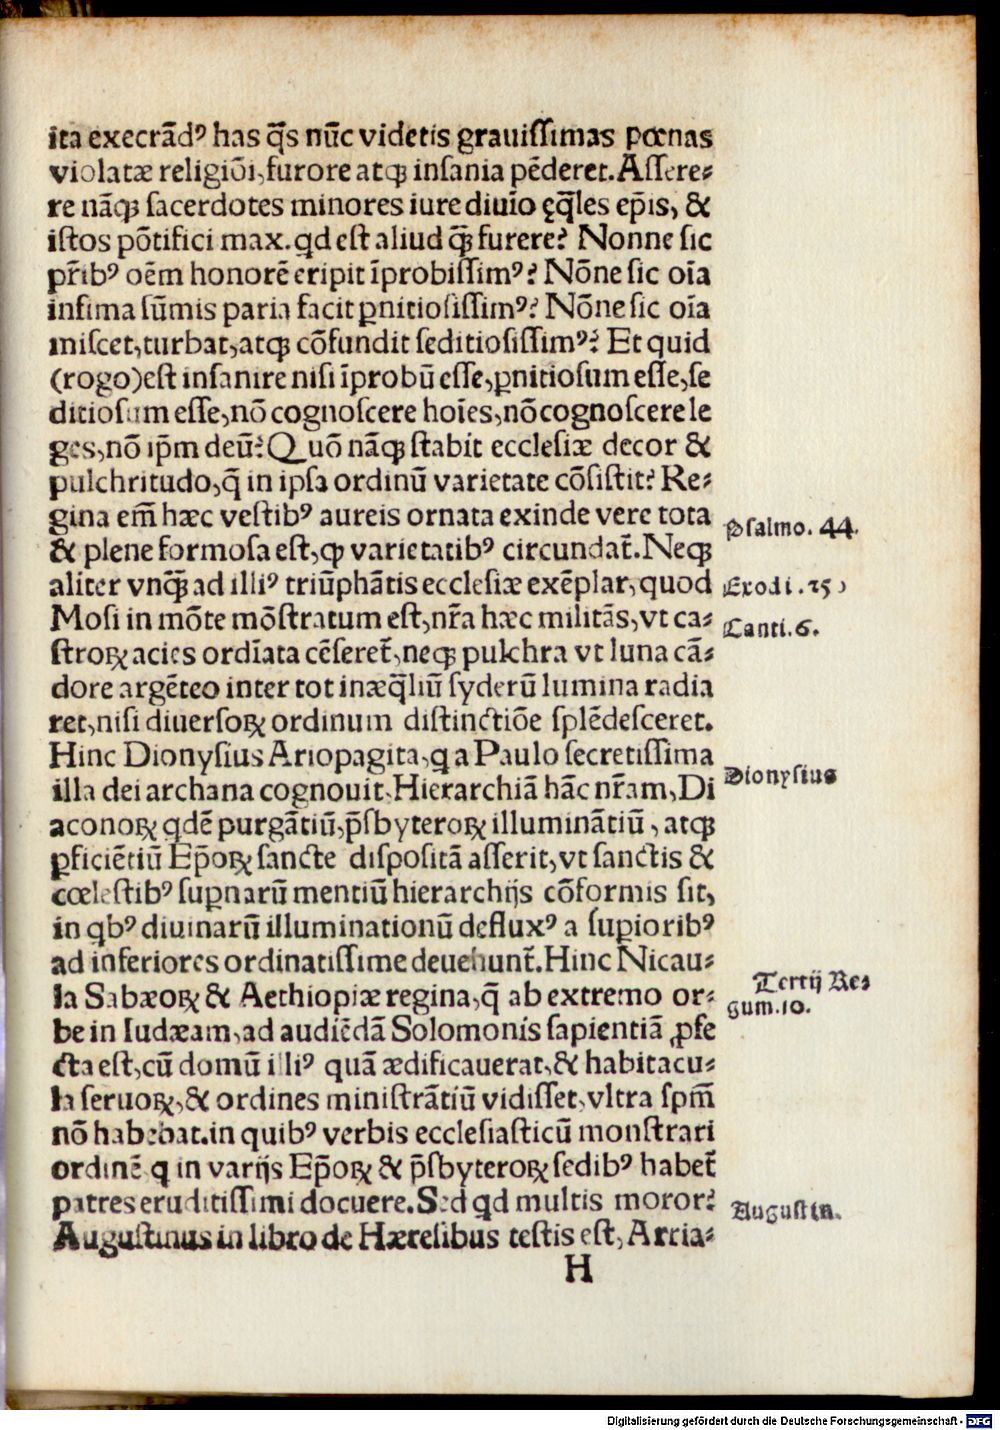 ita execrãdꝰ has q̃s nũc videtis grauiſſimas pœnas
violatæ religiõi, furore atqꝫ inſania pẽderet. Aſſere⸗
re nãqꝫ ſacerdotes minores iure diuĩo ęq̃les ep̃is, &
iſtos põtifici max. qd eſt aliud q̃ꝫ furere? Nonne ſic
pr̃ibꝰ oẽm honorẽ eripit ĩprobiſſimꝰ? Nõne ſic oĩa
infima sũmis paria facit ꝑnitioſiſſimꝰ? Nõne ſic oĩa
miſcet, turbat, atqꝫ cõfundit ſeditioſiſſimꝰ? Et quid
(rogo) eſt inſanire niſi ĩprobũ eſſe, ꝑnitioſum eſſe, ſe
ditioſum eſſe, nõ cognoſcere hoĩes, nõ cognoſcere le
ges, nõ ip̃m deũ? Quõ nãqꝫ ſtabit eccleſiæ decor &
pulchritudo, q̃ in ipſa ordinũ varietate cõſiſtit? Re⸗
gina em̃ hæc veſtibꝰ aureis ornata exinde vere tota
& plene formoſa eſt, qꝫ varietatibꝰ circundat̃. Neqꝫ
aliter vnq̃ꝫ ad illiꝰ triũphãtis eccleſiæ exẽplar, quod
Moſi in mõte mõſtratum eſt, nr̃a hæc militãs, vt ca⸗
ſtroꝝ acies ordĩata cẽſeret̃, neqꝫ pulchra vt luna cã⸗
dore argẽteo inter tot inæq̃liũ ſyderũ lumina radia
ret, niſi diuerſoꝝ ordinum diſtinctiõe ſplẽdeſceret.
Hinc Dionyſius Ariopagita, q a Paulo ſecretiſſima
illa dei archana cognouit. Hierarchiã hãc nr̃am, Di
aconoꝝ qdẽ purgãtiũ, p̃sbyteroꝝ illuminãtiũ, atqꝫ
ꝑficiẽtiũ Ep̃oꝝ ſancte diſpoſitã aſſerit, vt ſanctis &
cœleſtibꝰ ſuꝑnarũ mentiũ hierarchijs cõformis ſit,
in qbꝰ diuinarũ illuminationũ defluxꝰ a ſuꝑioribꝰ
ad inferiores ordinatiſſime deuehunt̃. Hinc Nicau⸗
la Sabæoꝝ & Aethiopiæ regina, q̃ ab extremo or⸗
be in Iudæam, ad audiẽdã Solomonis ſapientiã ꝓfe
cta eſt, cũ domũ illiꝰ quã ædificauerat, & habitacu⸗
la ſeruoꝝ, & ordines miniſtrãtiũ vidiſſet, vltra ſpm̃
nõ habebat. in quibꝰ verbis eccleſiaſticũ monſtrari
ordinẽ q in varijs Ep̃oꝝ & p̃sbyteroꝝ ſedibꝰ habet̃
patres eruditiſſimi docuere. Sed qd multis moror?
Auguſtinus in libro de Hæreſibus teſtis eſt, Arria⸗
H
Pſalmo. 44.
Exodi. 25
Canti. 6.
Dionyſius
Tertij Re⸗
gum. 10.
Auguſtin.
Digitalisierung gefördert durch die Deutsche Forschungsgemeinschaft - DFG